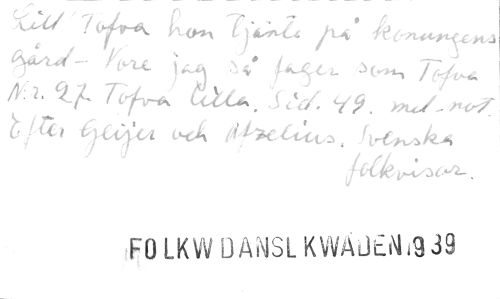 Litl Tofva hon tjänte på konungens
gård - Vore jag så fager som Tofva
N:r. 27. Tofva lilla. Sid. 49. mel-not.
Efter Geijer och Afzelius. Svenska
folkvisor.
FOLKWDANSLKWADEN1939